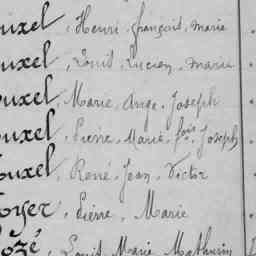 ouxel, Henri, françois, marie
ouxel, Louis, Lucien, marie
ouxel, Marie, Ange, Joseph
ouxel, Pierre, Marie, fois, Joseph
ouxel, René, Jean, Victor
oyer, Pierre, Marie
ozé, Louis, Marie, Mathurin